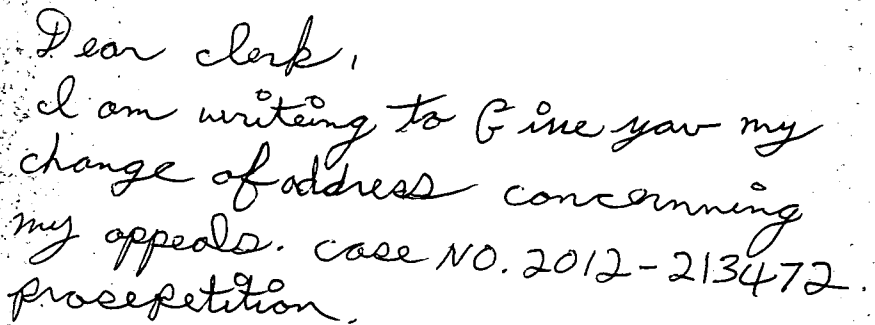 Dear clerk,
I am writeing to Give you my
change of address concernning
my appeals. case NO. 2012-213472.
prosepetition.